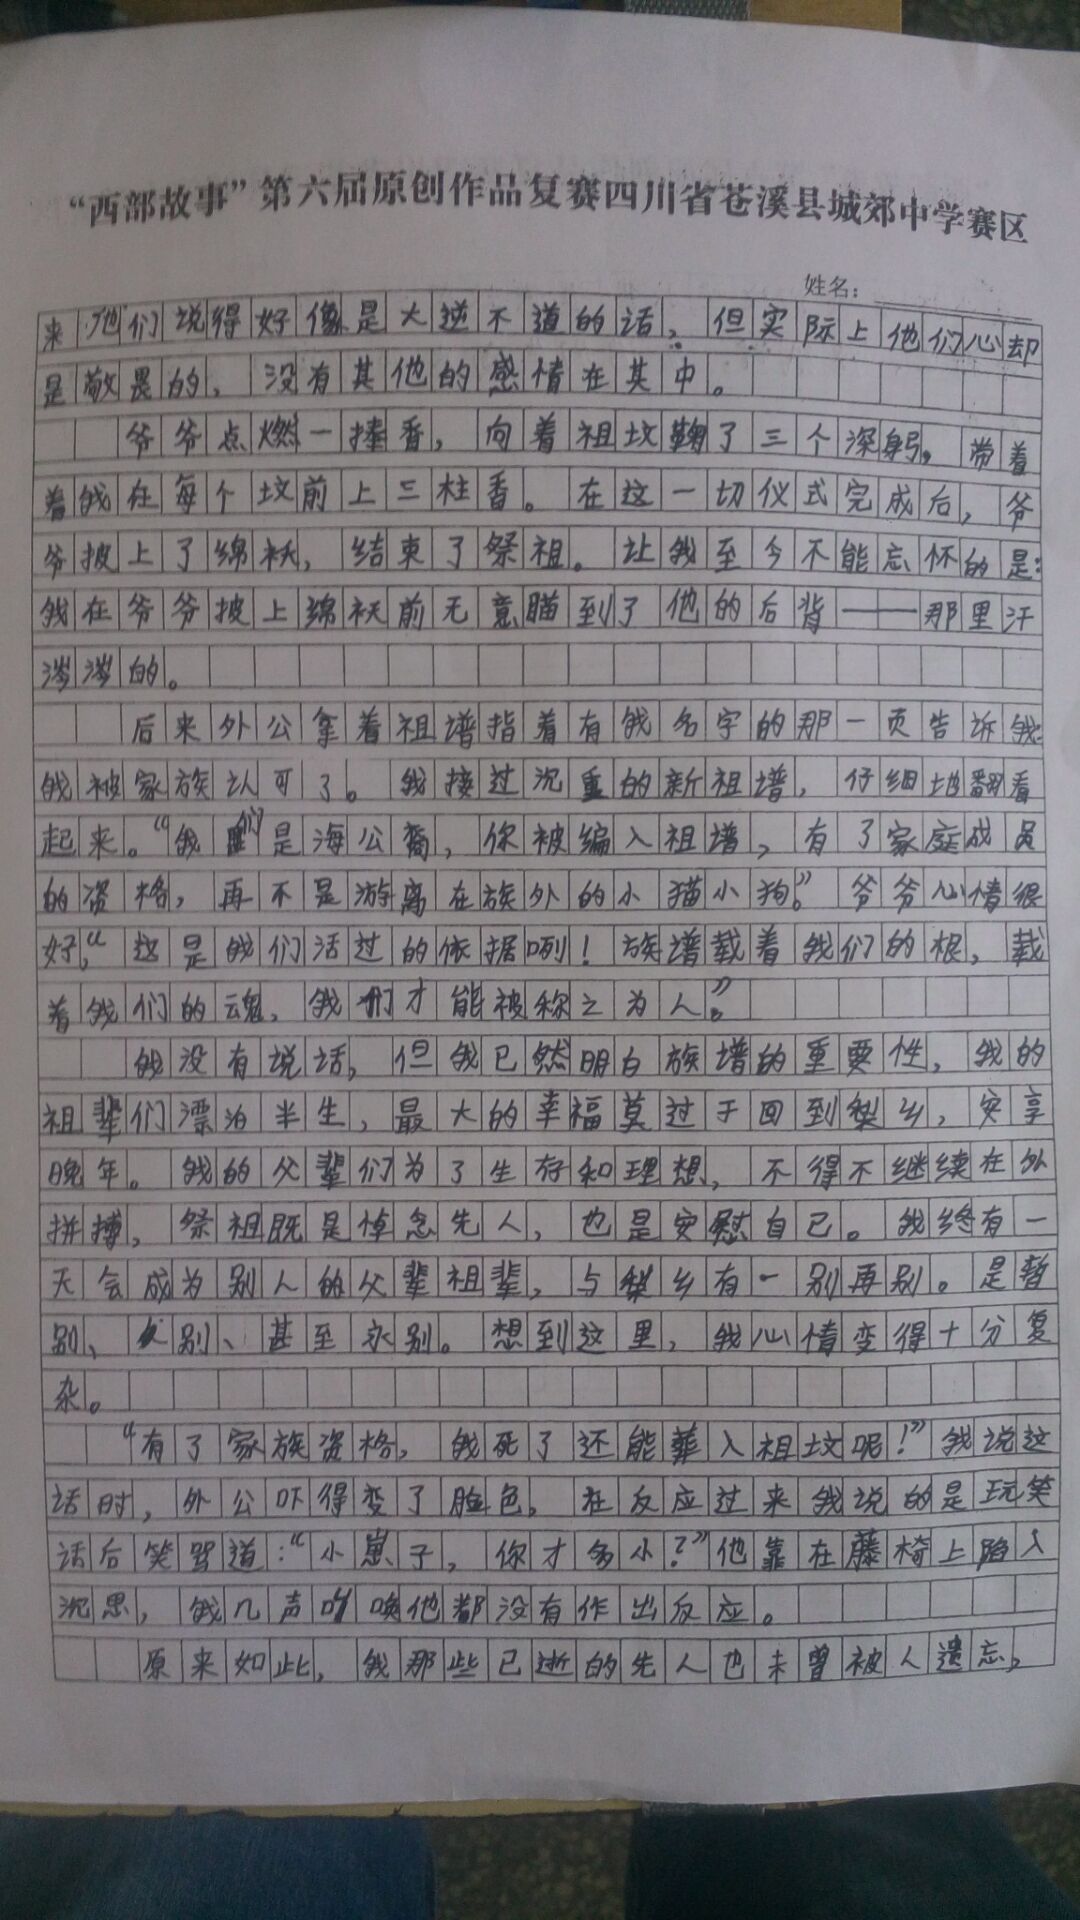 “西部故事”第六届原创作品复赛四川省苍溪县城郊中学赛区
姓名：
来他们说得好像是大逆不道的话，但实际上他们心却
是敬畏的，没有其他的感情在其中。
爷爷点燃一捧香，向着祖坟鞠了三个深躬，带着
着我在每个坟前上三柱香。在这一切仪式完成后，爷
爷披上了绵袄，结束了祭祖。让我至今不能忘怀的是：
我在爷爷披上绵袄前无意瞄到了他的后背——那里汗
涔涔的。
后来外公拿着祖谱指着有我名字的那一页告诉我：
我被家族认可了。我接过沉重的新祖谱，仔细地翻看
起来。“我们是海公裔，你被编入祖谱，有了家庭成员
的资格，再不是游离在族外的小猫小狗。”爷爷心情很
好，“这是我们活过的依据咧！族谱载着我们的根，载
着我们的魂，我们才能被称之为人。”
我没有说话，但我已然明白族谱的重要性，我的
祖辈们漂泊半生，最大的幸福莫过于回到梨乡，安享
晚年。我的父辈们为了生存和理想，不得不继续在外
拼搏，祭祖既是悼念先人，也是安慰自己。我终有一
天会成为别人的父辈祖辈，与梨乡有一别再别。是暂
别、久别、甚至永别。想到这里，我心情变得十分复
杂。
“有了家族资格，我死了还能葬入祖坟呢！”我说这
话时，外公吓得变了脸色，在反应过来我说的是玩笑
话后笑骂道：“小崽子，你才多小？”他靠在藤椅上陷入
沉思，我几声叫唤他都没有作出反应。
原来如此，我那些已逝的先人也未曾被人遗忘，